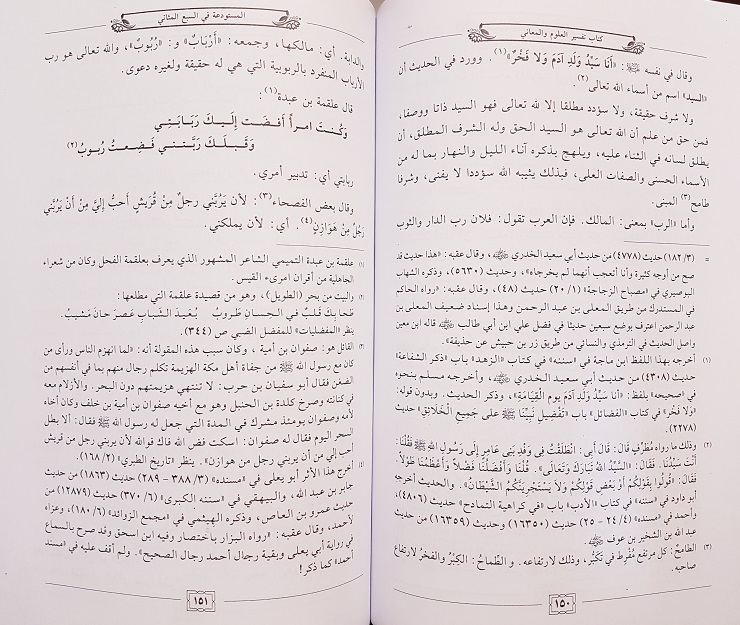 كتاب تفسير العلوم والمعاني
وقال في نفسه ﷺ: «أَنَا سَيِّدُ وَلَدِ آدَمَ وَلا فَخْرٌ»(١). وورد في الحديث أن
«السيد» اسم من أسماء الله تعالى(٢).
ولا شرف حقيقة، ولا سؤدد مطلقا إلا لله تعالى فهو السيد ذاتا ووصفا،
فمن حق من علم أن الله تعالى هو السيد الحق وله الشرف المطلق، أن
يطلق لسانه في الثناء عليه، ويلهج بذكره آناء الليل والنهار بما له من
الأسماء الحسنى والصفات العلى، فبذلك يثيبه الله سؤددا لا يفنى، وشرفا
طامح(٣) المبنى.
وأما «الرب» بمعنى: المالك. فإن العرب تقول: فلان رب الدار والثوب
= (١٨٢/٣) حديث (٤٧٧٨) من حديث أبي سعيد الخدري ﷺ، وقال عقبه: «هذا حديث قد
صح من أوجه كثيرة وأنا أتعجب أنهما لم يخرجاه»، وحديث (٥٦٣٠)، وذكره الشهاب
البوصيري في «مصباح الزجاجة» (٢٠/١) حديث (٤٨)، وقال عقبه: «رواه الحاكم
في المستدرك من طريق المعلى بن عبد الرحمن وهذا إسناد ضعيف المعلى بن
عبد الرحمن اعترف بوضع سبعين حديثا في فضل علي ابن أبي طالب ﷺ قاله ابن معين
واصل الحديث في الترمذي والنسائي من طريق زر بن حبيش عن حذيفة».
(١) أخرجه بهذا اللفظ ابن ماجة في «سننه» في كتاب «الزهد» باب «ذكر الشفاعة»
(٤٣٠٨) من حديث أبي سعيد الخدري ﷺ، وأخرجه مسلم بنحوه
في «صحيحه» بلفظ: «أَنَا سَيِّدُ وَلَدِ آدَمَ يوم القيامة»، وذكر الحديث. وبدون قوله:
«وَلا فَخْرَ» في كتاب «الفضائل» باب «تَفْضِيل نَبِيِّنَا ﷺ عَلى جَمِيعِ الْخَلَائِقِ» حديث
(٢٢٧٨).
(٢) وذلك ما رواه مُطَرِّفٍ قَالَ: قَالَ أبى: انْطَلَقْتُ فِى وَفْدِ بَنِى عَامِرٍ إِلَى رَسُولِ اللَّهِ ﷺ فَقُلْنَا:
أَنْتَ سَيِّدُنَا. فَقَالَ: «السَّيِّدُ اللَّهُ تَبَارَكَ وَتَعَالَى». قُلْنَا وَأَفْضَلُنَا فَضْلاً وَأَعْظَمُنَا طَوْلاً.
فَقَالَ: «قُولُوا بِقَوْلِكُمْ أَوْ بَعْضِ قَوْلِكُمْ وَلاَ يَسْتَجْرِيَنَّكُمُ الشَّيْطَانُ». والحديث أخرجه
أبو داود في «سننه» في كتاب «الأدب» باب «في كراهية التمادح» حديث (٤٨٠٦)،
وأحمد في «مسنده» (٢٤/٤ - ٢٥) حديث (١٦٣٥٠) وحديث (١٦٣٥٩) من حديث
عبد الله بن الشخير بن عوف ﷺ.
(٣) الطامح: كل مرتفع مُفْرِط في تكَبُّر، وذلك لارتفاعه. و الطِّماحُ: الكِبْرُ والفخرُ لارتفاع
صاحبه.
١٥٠
المستودعة في السبع المثاني
والدابة. أي: مالكها، وجمعه: «أَرْبَابٌ» و: «رُبُوبٌ»، والله تعالى هو رب
الأرباب المنفرد بالربوبية التي هي له حقيقة ولغيره دعوى.
قال علقمة بن عبدة(١):
وَكُنتَ امرأً أَفضَت إِلَيكَ رَبَابَتِي
وَقَبلَكَ رَبَّتني فَضِعتُ رُبُوبُ(٢)
ربابتي أي: تدبير أمري.
وقال بعض الفصحاء(٣): لأن يَرُبَّني رجلٌ مِنْ قُرَيشٍ أَحبُّ إِليَّ مِنْ أَنْ يَرُبَّني
رَجُلٌ مِنْ هَوَازِنَ(٤). أي: لأن يملكني.
(١) علقمة بن عبدة التميمي الشاعر المشهور الذي يعرف بعلقمة الفحل وكان من شعراء
الجاهلية من أقران امرىء القيس.
(٢) والبيت من بحر (الطويل)، وهو من قصيدة علقمة التي مطلعها:
طَحا بِكَ قَلبٌ في الحِسانِ طَروبُ بُعَيدَ الشَّبابِ عَصرَ حَانَ مَشيبُ.
ينظر «المفضليات» للمفضل الضبي ص (٣٤٤).
(٣) القائل هو: صفوان بن أمية ، وكان سبب هذه المقولة أنه: «لما انهزم الناس ورأى من
كان مع رسول الله ﷺ من جفاة أهل مكة الهزيمة تكلم رجال منهم بما في أنفسهم من
الضغن فقال أبو سفيان بن حرب: لا تنتهي هزيمتهم دون البحر. والأزلام معه
في كنانته وصرخ كلدة بن الحنبل وهو مع أخيه صفوان بن أمية بن خلف وكان أخاه
لأمه وصفوان يومئذ مشرك في المدة التي جعل له رسول الله ﷺ فقال: ألا بطل
السحر اليوم فقال له صفوان: اسكت فض الله فاك فوالله لأن يربني رجل من قريش
أحب إلي من أن يربني رجل من هوازن». ينظر «تاريخ الطبري» (١٦٨/٢).
(٤) أخرج هذا الأثر أبو يعلى في «مسنده» (٣/ ٣٨٨ - ٢٨٩) حديث (١٨٦٣) من حديث
جابر بن عبد الله، والبيهقي في «سننه الكبرى» (٦/ ٣٧٠) حديث (١٢٨٧٩) من
حديث عمرو بن العاص، وذكره الهيثمي في «مجمع الزوائد» (١٨٠/٦)، وعزاه
لأحمد، وقال عقبه: «رواه البزار باختصار وفيه ابن اسحق وقد صرح بالسماع
في رواية أبي يعلى وبقية رجال أحمد رجال الصحيح». ولم أقف عليه في «مسند
أحمد» كما ذكر!
١٥١